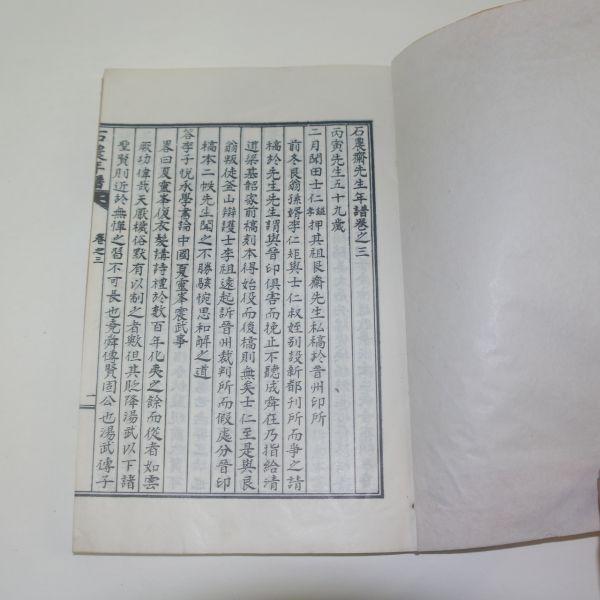 石農齋先生年譜卷之三
丙寅先生五十九歲
二月聞田士仁鎰孝押其祖艮齋先生私稿於晉州印所
前冬艮翁孫婿李仁矩與士仁叔姪別設新都刊所而爭之請
稿於先生先生謂與晉印俱害而挽止不聽成舜在乃指給清
道梁基韶家前稿刻本得始役而後稿則無矣士仁至是與艮
翁叛徒釜山辯護士李祖遠起訴晉州裁判所而假處分晉印
稿本二帙先生聞之不勝駭惋思和解之道
答李子悅承學書論中國夏靈峯震武事
畧曰夏靈峯復衣髮講詩禮於數百年化夷之餘而從者如雲
厥功偉哉天厭穢俗默有以制之者歟但其貶降湯武以下諸
聖賢則近於無憚之習不可長也堯舜傳賢周公也湯武傳子
石農年譜
卷之三
一